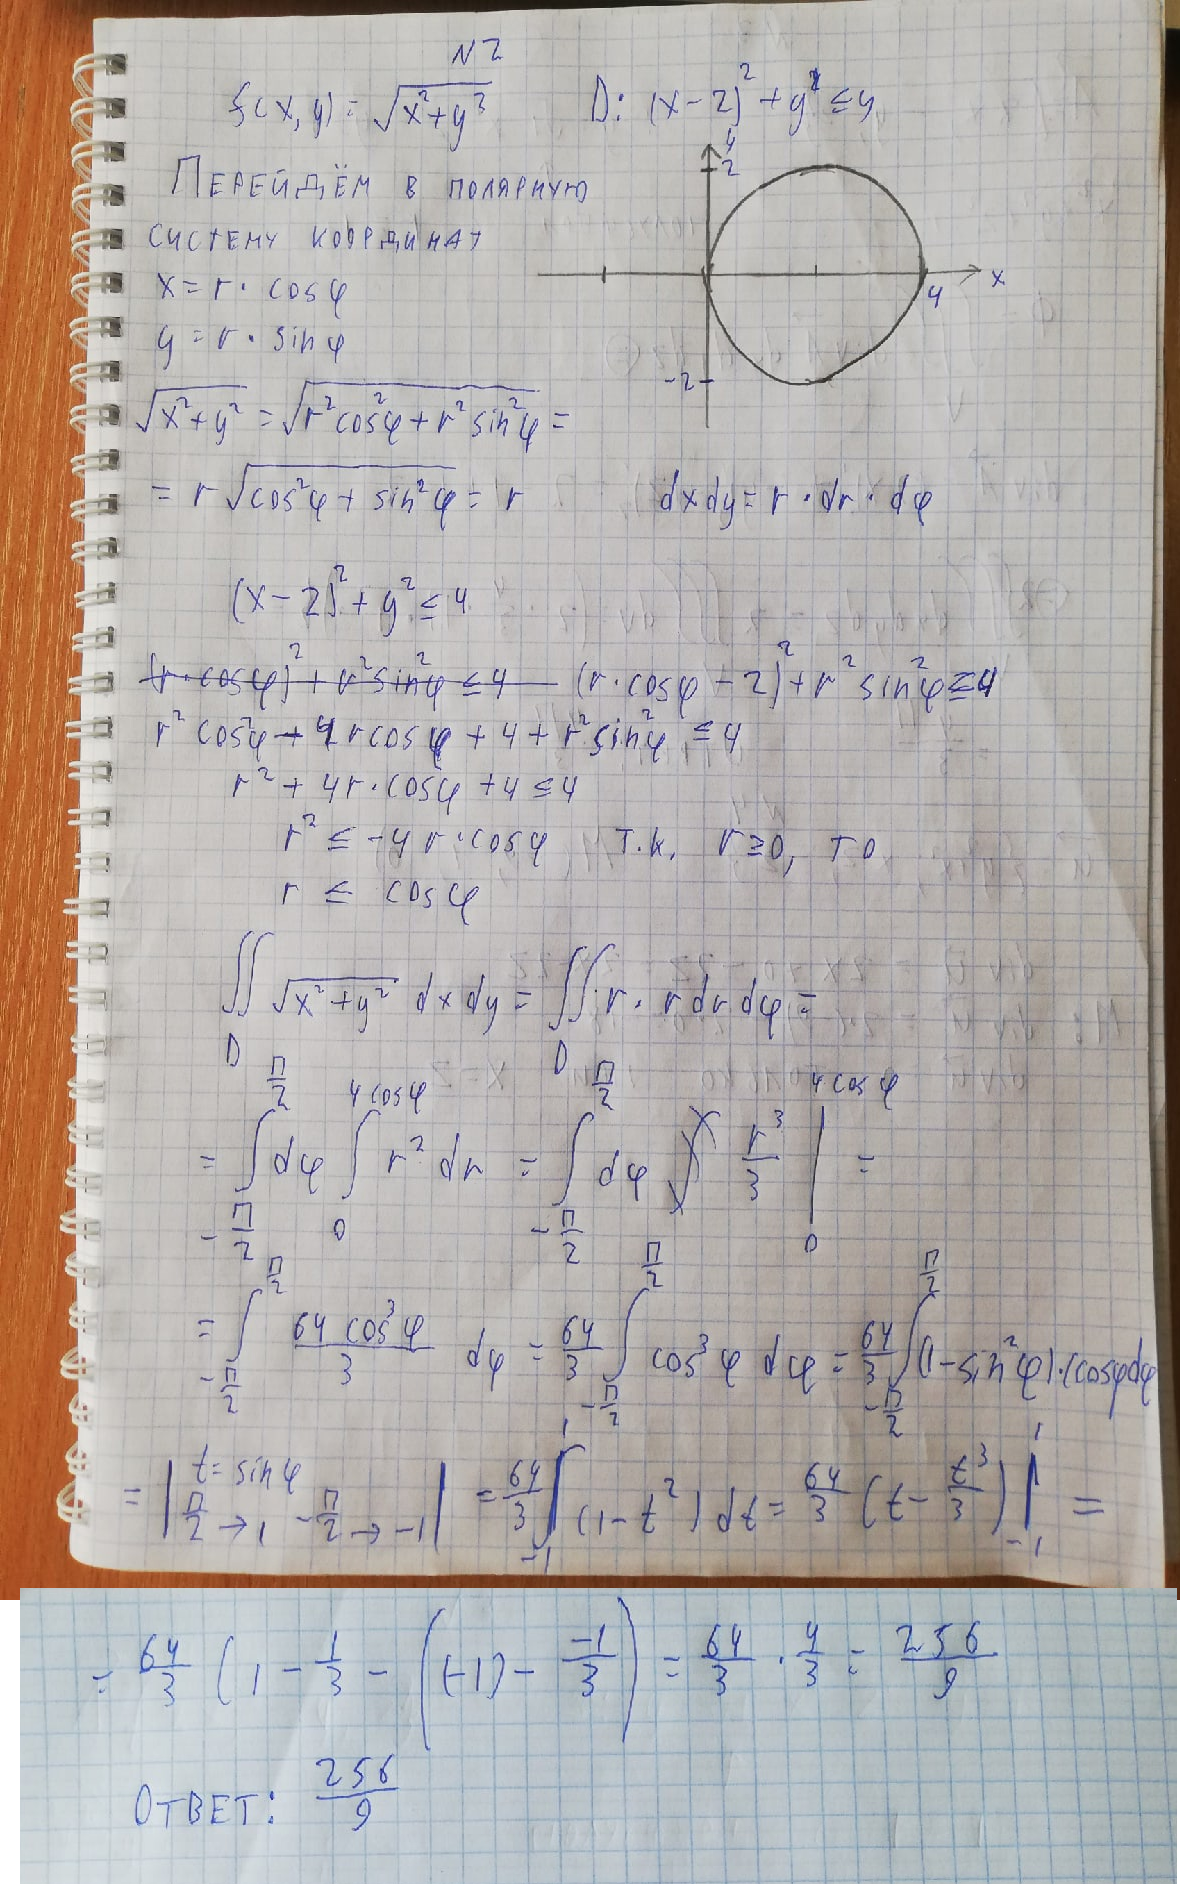 N2
f(x, y) = √(x² + y²)    D: (x - 2)² + y² ≤ 4
Перейдём в полярную
систему координат
x = r · cos φ
y = r · sin φ
y
2
x
4
-2
√(x² + y²) = √(r² cos² φ + r² sin² φ) =
= r √(cos² φ + sin² φ) = r    dxdy = r · dr · dφ
(x - 2)² + y² ≤ 4
(r · cos φ - 2)² + r² sin² φ ≤ 4
r² cos² φ + 4 r cos φ + 4 + r² sin² φ ≤ 4
r² + 4r · cos φ + 4 ≤ 4
r² ≤ -4 r · cos φ    т.к. r ≥ 0, то
r ≤ cos φ
∬_D √(x² + y²) dx dy = ∬_D r · r dr dφ =
= ∫_{-π/2}^{π/2} dφ ∫_0^{4 cos φ} r² dr = ∫_{-π/2}^{π/2} dφ r³/3 |_0^{4 cos φ} =
= ∫_{-π/2}^{π/2} 64 cos³ φ/3 dφ = 64/3 ∫_{-π/2}^{π/2} cos³ φ dφ = 64/3 ∫_{-π/2}^{π/2} (1 - sin² φ) · (cos φ dφ
= | t = sin φ π/2 → 1 -π/2 → -1 | = 64/3 ∫_{-1}^{1} (1 - t²) dt = 64/3 (t - t³/3) |_{-1}^{1} =
= 64/3 (1 - 1/3 - ((-1) - -1/3) = 64/3 · 4/3 = 256/9
Ответ: 256/9